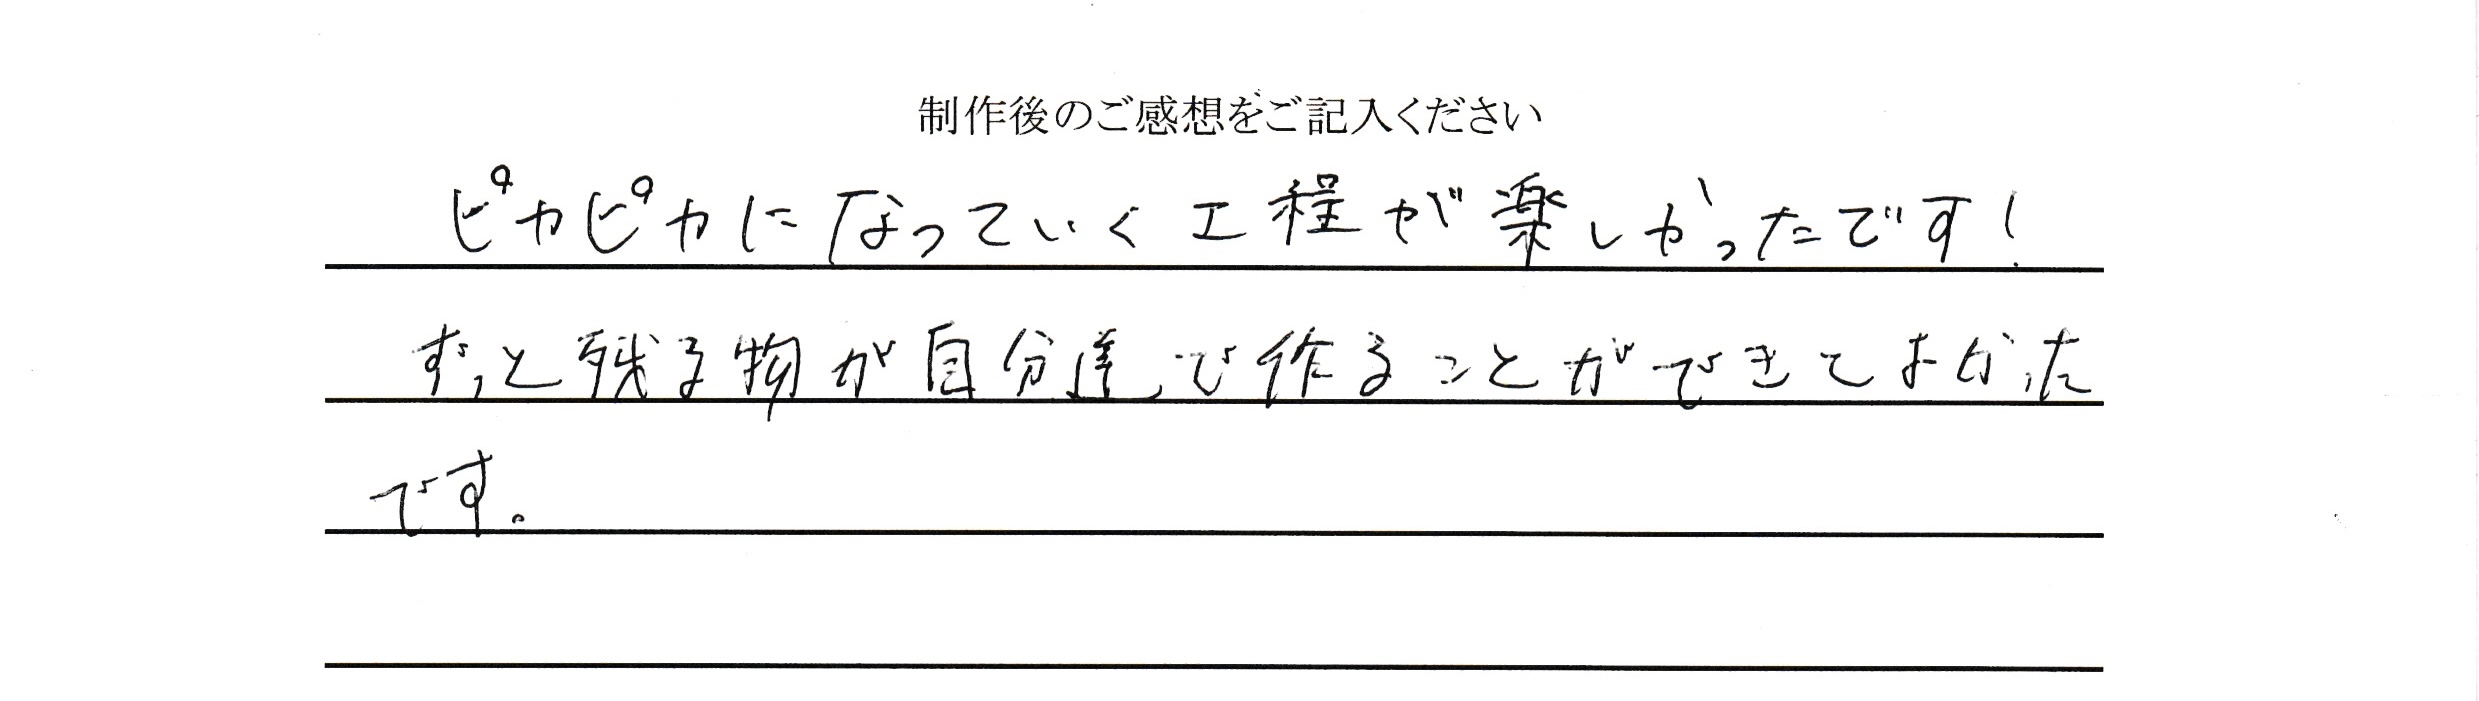 制作後のご感想をご記入ください
ピカピカになっていく工程が楽しかったです!
ずっと残る物が自分達で作ることができてよかった
です。